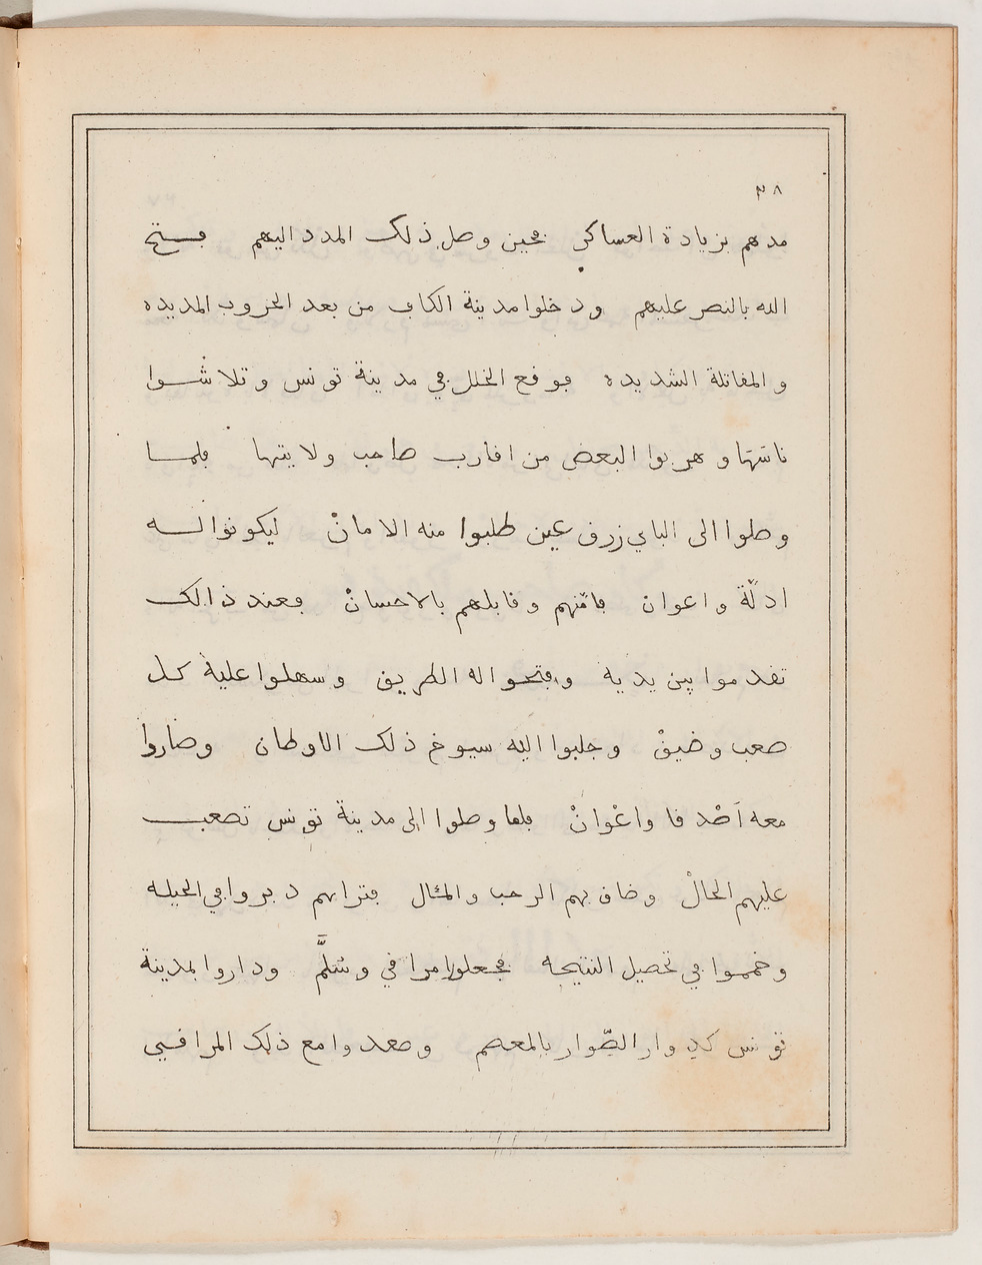 ٣٨
مدهم بزيادة العساكر فحين وصل ذلك المدد اليهم فتح
الله بالنصر عليهم ودخلوا مدينة الكاف من بعد الحروب المديده
والمقاتلة الشديده فوقع الخلل في مدينة تونس وتلاشوا
ناسها وهربوا البعض من اقارب صاحب ولايتها فلما
وصلوا الى الباي زرق عين طلبوا منه الامانْ ليكونوا له
ادلّة واعوان فامّنهم وقابلهم بالاحسانْ فعند ذالك
تقدموا بين يديه وفتحوا له الطريق وسهلوا عليه كل
صعب وضيقْ وجلبوا اليه سيوخ ذلك الاوطان وصاروا
معه اَصْدقا واعْوانْ فلما وصلوا الى مدينة تونس تصعب
عليهم الحالْ وضاق بهم الرحب والمثال فتراهم دبروا في الحيله
وخمموا في تحصيل النتيجه فجعلوا مراقي وسُلَّم وداروا بمدينة
تونس كدوار الصّوار بالمعصم وصعدوا مع ذلك المراقي